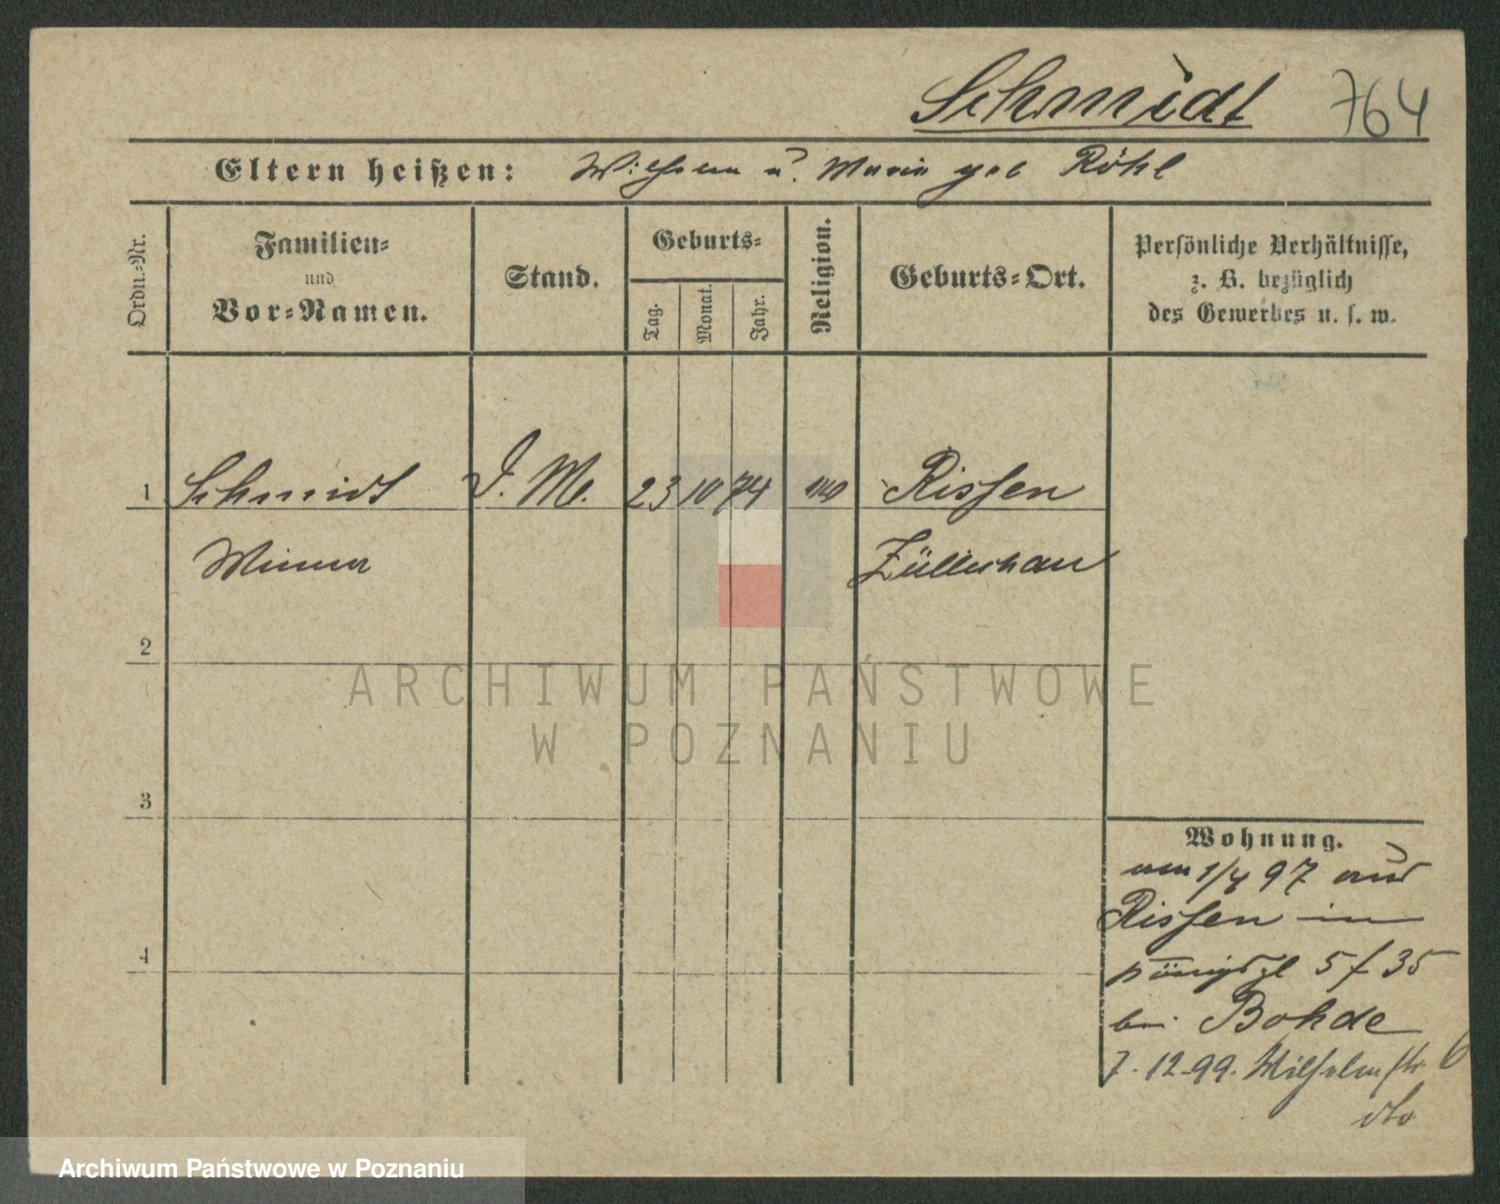 Schmidt 764
Eltern heißen: Wilhelm u. Marie geb Röhl
Ordn.-Nr.
Familien-
und
Vor-Namen.
Stand.
Geburts-
Tag.
Monat.
Jahr.
Religion.
Geburts-Ort.
Persönliche Verhältnisse,
z. B. bezüglich
des Gewerbes u. s. w.
1 Schmidt D. M. 23 10 74 Rissen
Minna Züllichau
2
3
4
Wohnung.
am 1/4 97 aus
Rissen in
Königspl 5 f 35
bei Bohde
7.12.99. Wilhelmstr 6
dto
ARCHIWUM PAŃSTWOWE
W POZNANIU
Archiwum Państwowe w Poznaniu